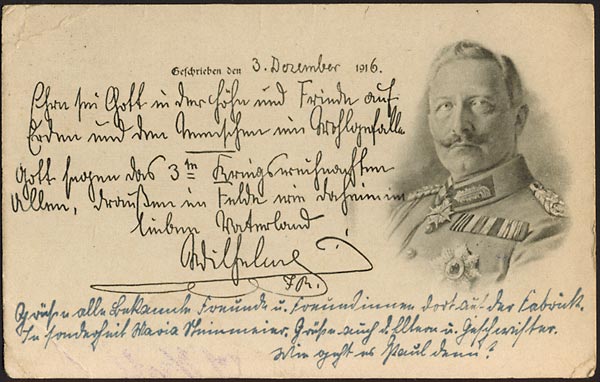 Geschrieben den 3. Dezember 1916.
Ehre sei Gott in der Höhe und Friede auf
Erden und den Menschen ein Wohlgefallen
Gott segne das 3te Kriegsweihnachten
Allen, draußen im Felde wie daheim im
lieben Vaterland
Wilhelm
I.R.
Grüße alle Bekannte Freunde u. Freundinnen dort auf der Fabrick.
In sonderheit Maria Steinmeier. Grüße auch d. Eltern u. Geschwister.
Wie geht es Paul denn?